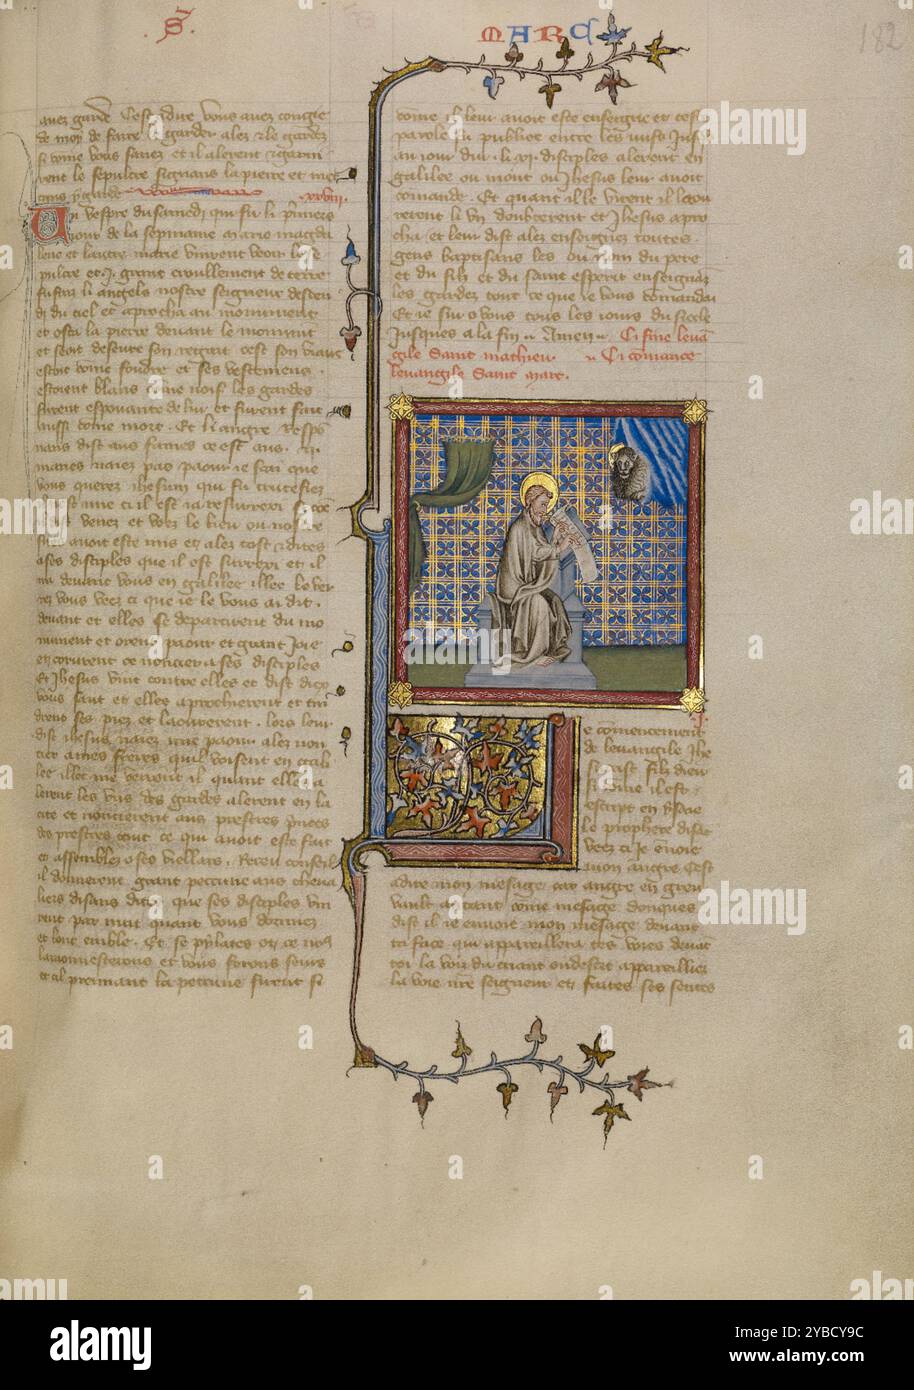 S.
MARC
182
auez garde Cest adire vous auez congie
de moy de faire garder alez & le gardez
si come vous sauez et il alerent & garni
rent le sepulcre signans la pierre et met
xxviii.
Au vespre du samedi qui fu li p'miers
iour de la sepmaine marie magda
lene et lautre marie vindrent veoir le se
pulcre et .i. grant croullement de terre
fu fair li angels nostre seigneur desten
di du ciel et aprocha au monument
et osta la pierre deuant le monument
et seoit deseure son regart cest son viaire
estoit come foudre et ses vestemens
estoient blans come noif les gardes
furent espouante de lui et furent fait
aussi come mort. Et li angre respo
nans dist aus fames ce est aus .ii.
maries naiez pas paour ie scai que
vous querez ihesum qui fu crucefiez
il dist venez et veez le lieu ou nostre
sire auoit este mis et alez tost & dites
a ses disciples que il est surrexi et il
ira deuant vous en galilee illec le ver
rez vous veez ci que ie le vous ai dit.
deuant et elles se departirent du mo
nument et orent paour et grant ioie
en corurent ce noncier a ses disciples
Et ihesus vint contre elles et dist diex
vous saut et elles aprochierent et tin
drent ses piez et laourerent. lors leur
dist ihesus naiez mie paour alez non
cier a mes freres quil voisent en gali
lee illec me verront il quant elles a
lerent les vns des gardes alerent en la
cite et noncierent aus prestres princes
des prestres tout ce qui auoit este fait
et assemblez o ses viellars. Receu conseil
il donnerent grant peccune aus cheua
liers disans dites que ses disciples vin
rent par nuit quant vous dormiez
et lont emble. Et se pylates ot ce nous
lamonnesterons et vous ferons seurs
et il prennant la peccune firent si
come il leur auoit este enseignie et ceste
parole fu publiee entre les iuifs iusq'
au iour dui. li xi disciples alerent en
galilee ou mont ou ihesus leur auoit
comande. Et quant il le virent il laou
rerent li vn doubterent et ihesus apro
cha et leur dist alez enseigniez toutes
gens baptisans les ou nom du pere
et du filz et du saint esperit enseignaz
les gardez tout ce que ie vous comandai
Et ie sui o vous tous les iours du siecle
iusques a la fin Amen. Ci fine leuan
gile Saint mathieu. Ci comance
leuangile Saint marc.
Le comencement
de leuangile ihe
su crist filz dieu
si come il est
escript en ysaie
le prophete disant
veez ci ie enuoie
mon angre Cest
a dire mon mesage car angre en grieu
vault a tant come mesage donques
dist il ie enuoie mon mesage deuant
ta face qui appareillera tes voies deuant
toi la voix du criant ou desert appareilliez
la voie nre seigneur et faites ses sentes
alamy
Image ID: 2YBCY9C
www.alamy.com